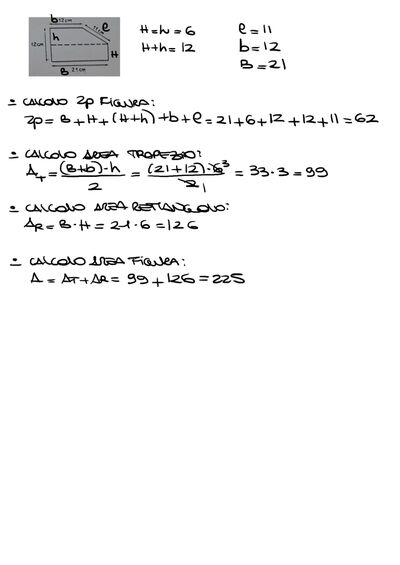 b 12cm
11cm e
h
12cm
H
B 21cm
H=h=6
H+h=12
e=11
b=12
B=21
- CALCOLO 2p FIGURA:
2p= B+H+(H+h)+b+e=21+6+12+12+11=62
- CALCOLO AREA TRAPEZIO:
AT=(B+b)·h/2=(21+12)·6³/21=33·3=99
- CALCOLO AREA RETTANGOLO:
AR=B·H=21·6=126
- CALCOLO AREA FIGURA:
A=AT+AR=99+126=225